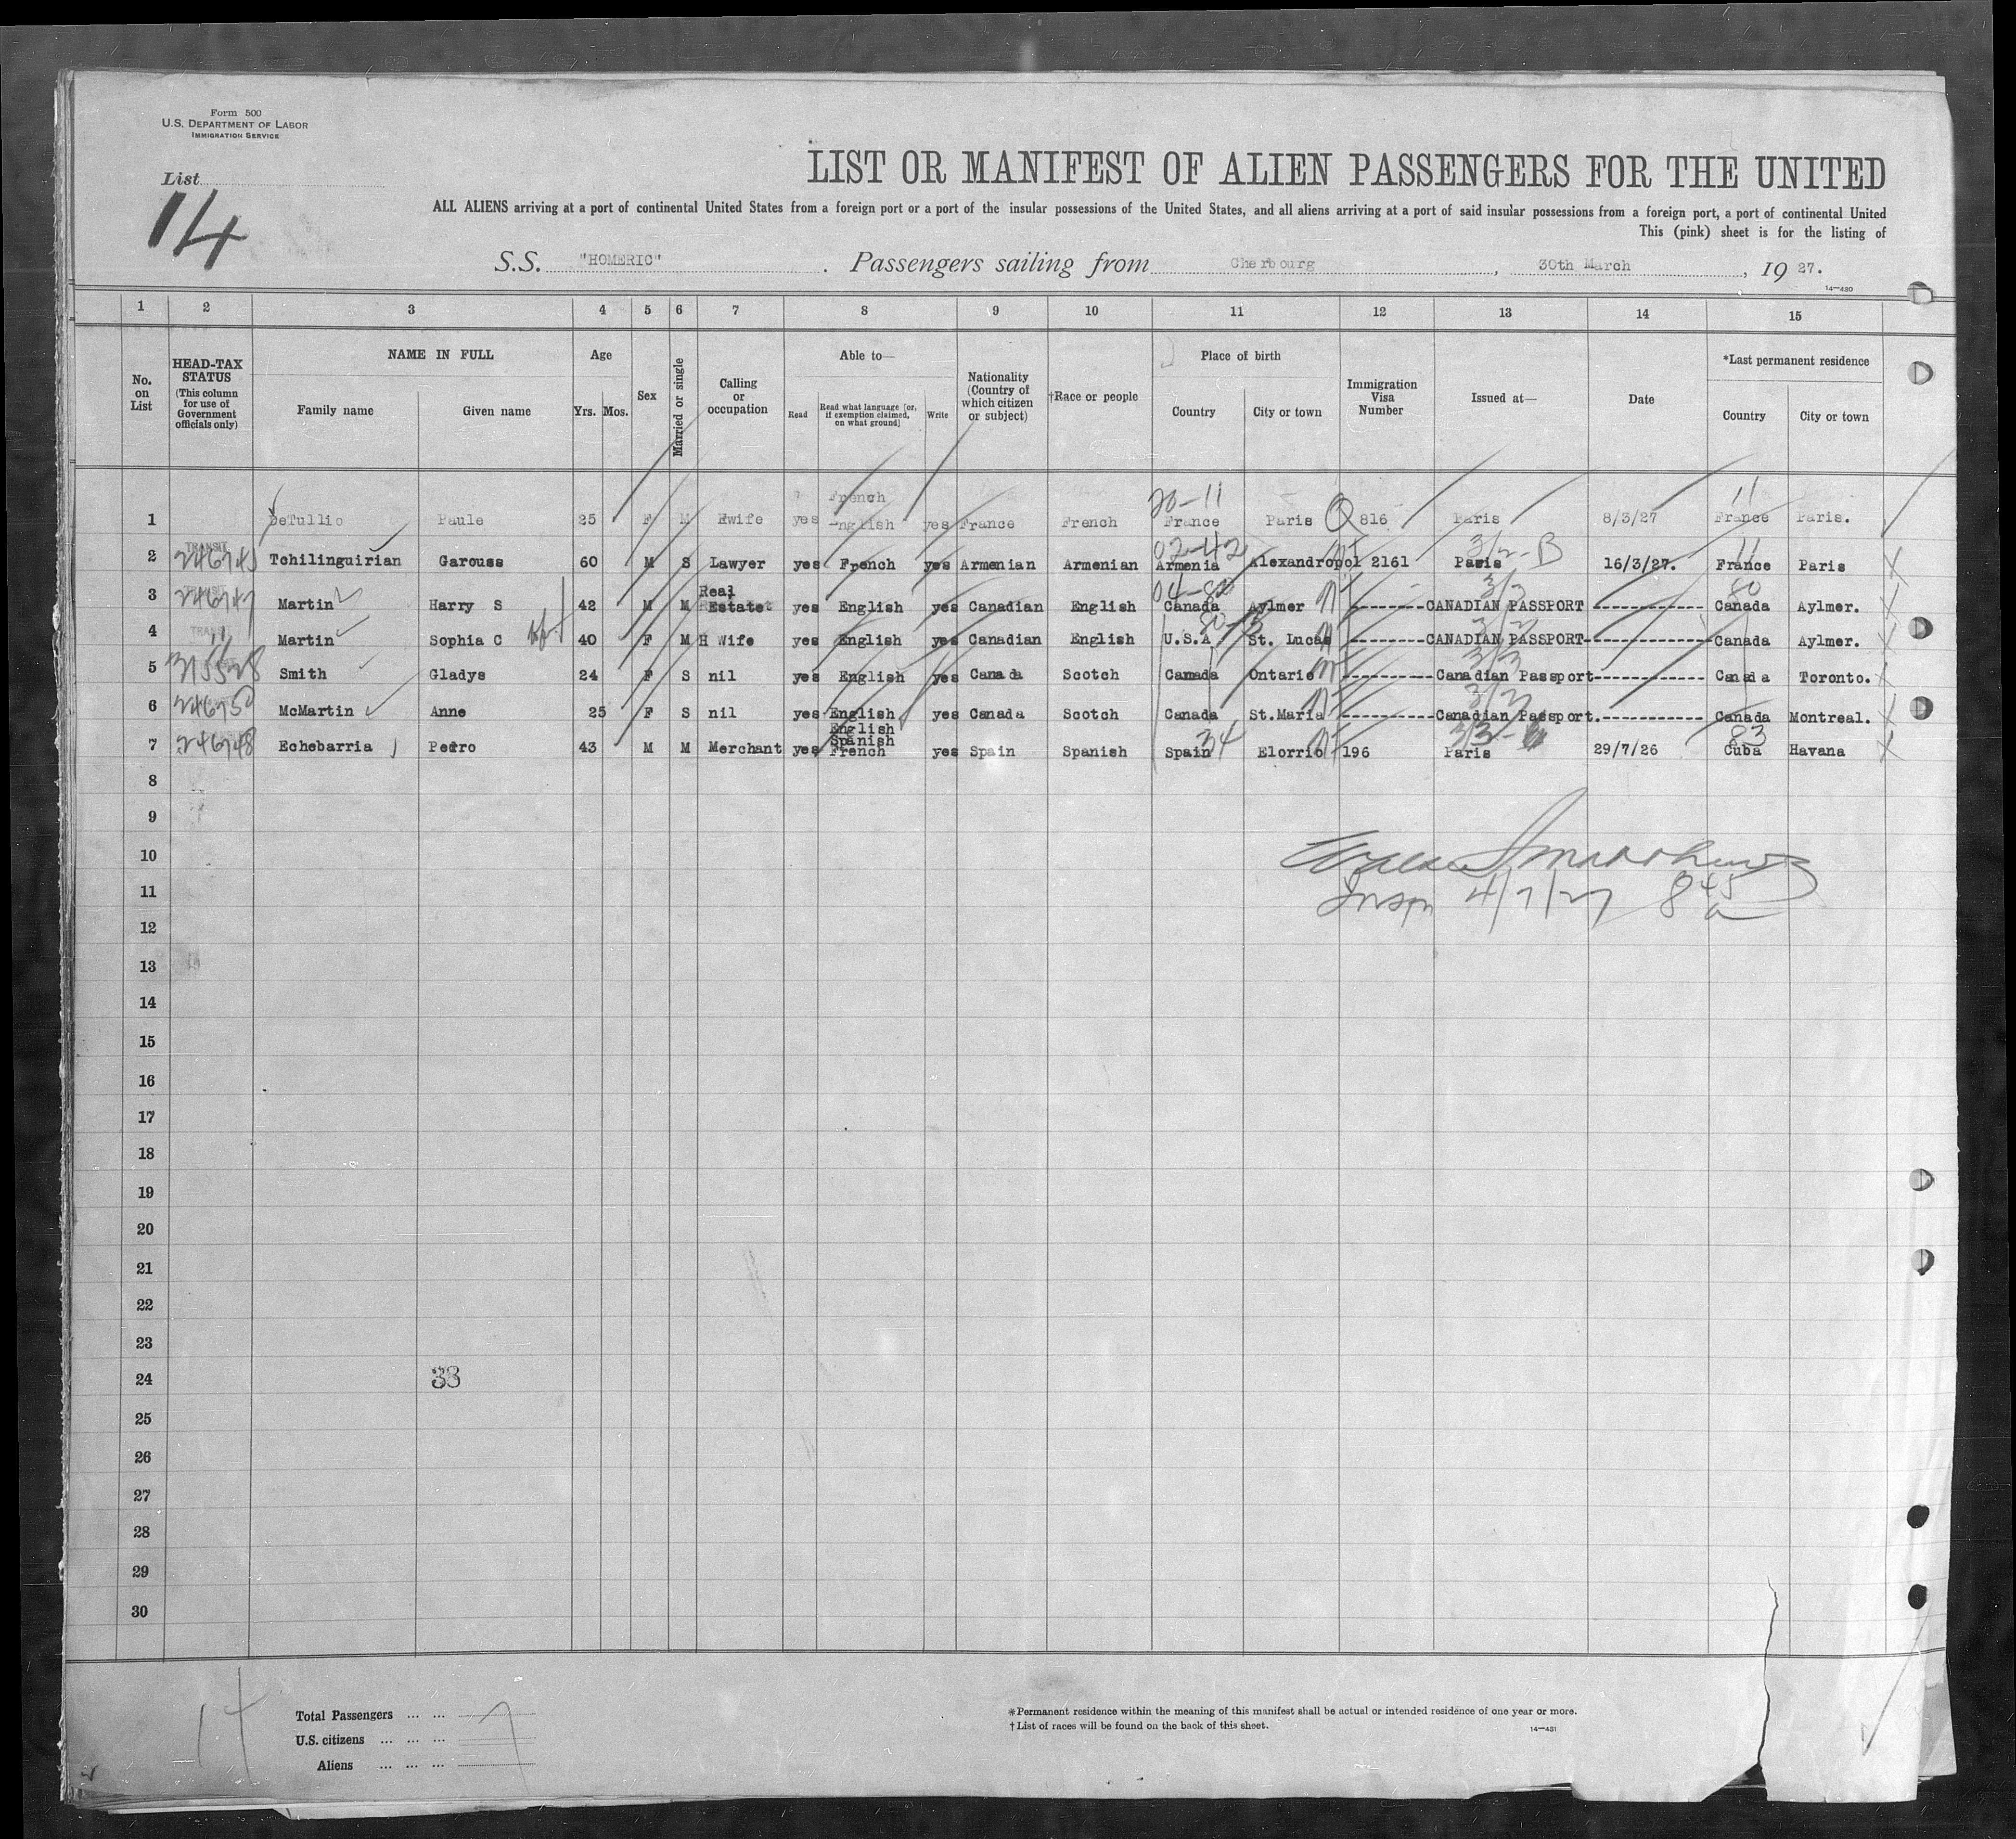 Form 500
U.S. DEPARTMENT OF LABOR
IMMIGRATION SERVICE
List
14
LIST OR MANIFEST OF ALIEN PASSENGERS FOR THE UNITED
ALL ALIENS arriving at a port of continental United States from a foreign port or a port of the insular possessions of the United States, and all aliens arriving at a port of said insular possessions from a foreign port, a port of continental United
This (pink) sheet is for the listing of
S.S. "HOMERIC" . Passengers sailing from Cherbourg , 30th March , 19 27.
14—480
1 2 3 4 5 6 7 8 9 10 11 12 13 14 15
No. on List
HEAD-TAX STATUS (This column for use of Government officials only)
NAME IN FULL
Family name Given name
Age
Yrs. Mos.
Sex
Married or single
Calling or occupation
Able to—
Read Read what language [or, if exemption claimed, on what ground] Write
Nationality (Country of which citizen or subject)
†Race or people
Place of birth
Country City or town
Immigration Visa Number
Issued at—
Date
*Last permanent residence
Country City or town
20-11 11
French
1 DeTullio Paule 25 F M Hwife yes English yes France French France Paris Q 816 Paris 8/3/27 France Paris.
TRANSIT 02-42 3/2-B 11
2 246745 Tchilinguirian Garouss 60 M S Lawyer yes French yes Armenian Armenian Armenia Alexandropol 2161 Paris 16/3/27. France Paris X
04-80 3/2 80
3 246747 Martin Harry S 42 M M Real Estate yes English yes Canadian English Canada Aylmer --------CANADIAN PASSPORT ------------ Canada Aylmer. X
3/2
4 Martin Sophia C 40 F M H Wife yes English yes Canadian English U.S.A St. Lucas ---------CANADIAN PASSPORT-------------- Canada Aylmer. X
3/3
5 315528 Smith Gladys 24 F S nil yes English yes Canada Scotch Canada Ontario ----------Canadian Passport------------ Canada Toronto. X
3/2
6 246750 McMartin Anne 25 F S nil yes English yes Canada Scotch Canada St.Maria ----------Canadian Passport.----------- Canada Montreal. X
34 83
7 246748 Echebarria Pedro 43 M M Merchant yes English Spanish French yes Spain Spanish Spain Elorrio 196 Paris 29/7/26 Cuba Havana X
8
9
10
11
Insp 4/7/27 8 45 a
12
13
14
15
16
17
18
19
20
21
22
23
24 33
25
26
27
28
29
30
14
Total Passengers ... ... 7
U.S. citizens ... ... ...
Aliens ... ... ...
*Permanent residence within the meaning of this manifest shall be actual or intended residence of one year or more.
†List of races will be found on the back of this sheet.
14—481